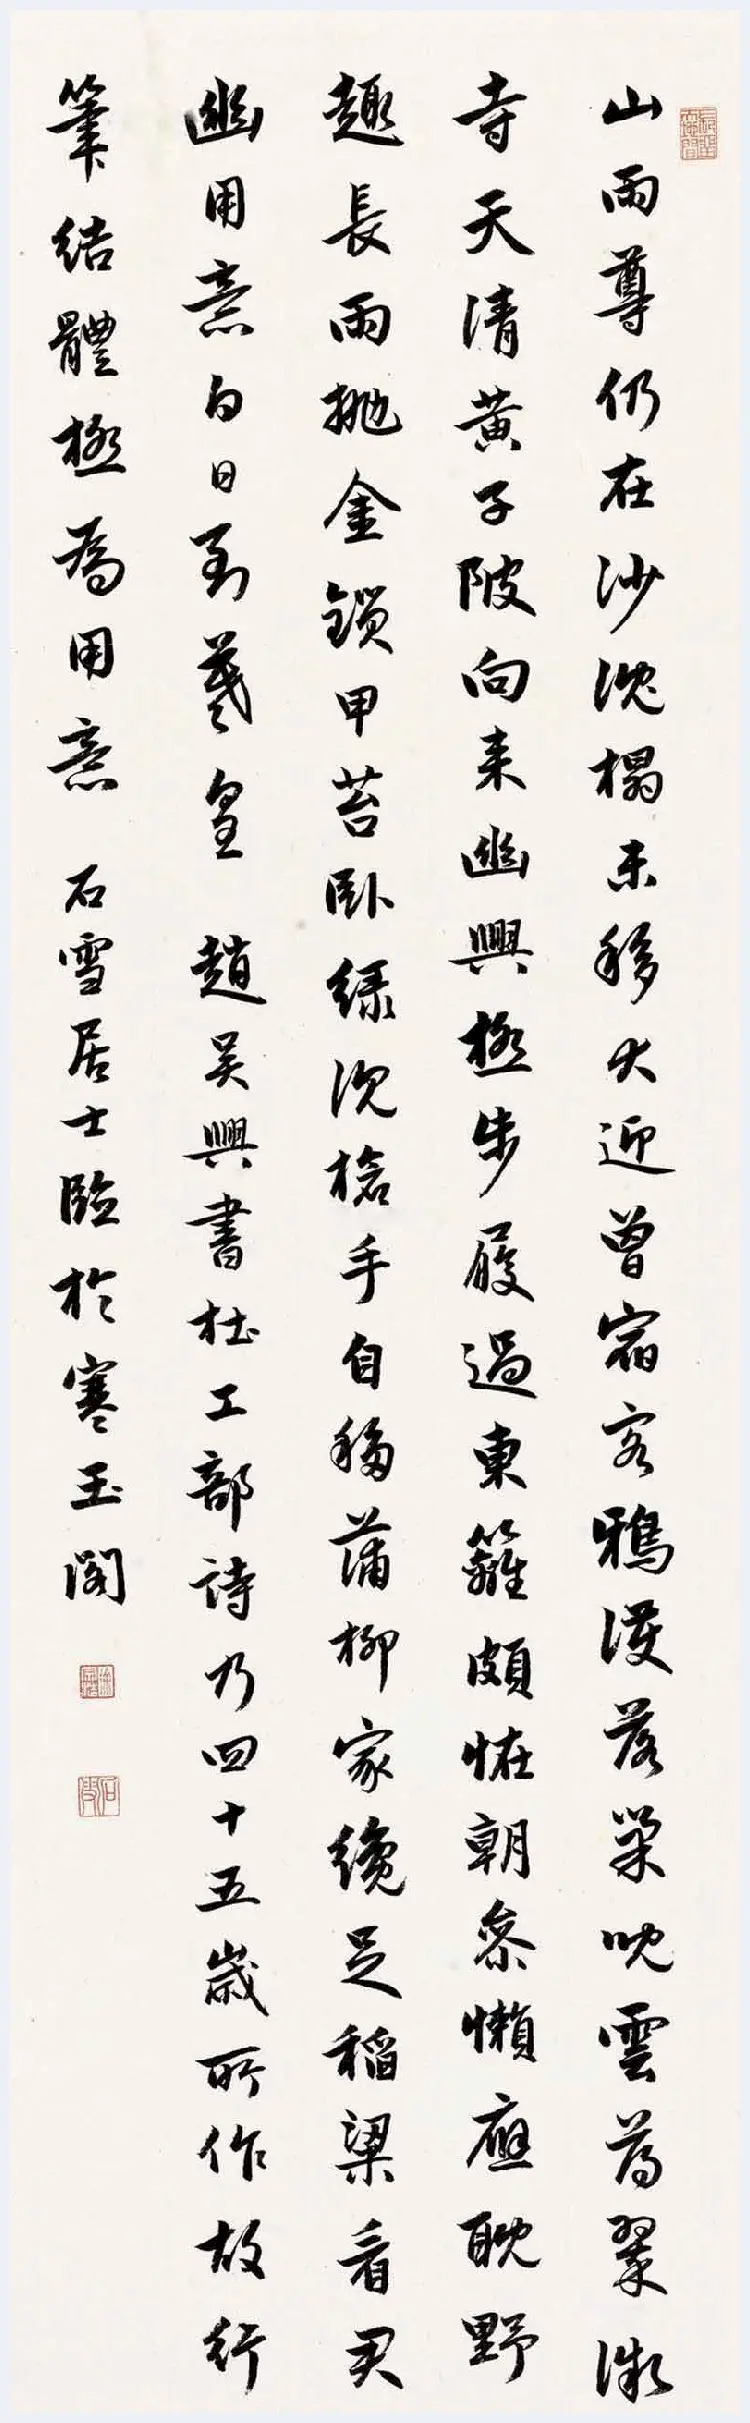 山雨尊仍在沙沈榻未移犬迎曾宿客鴉護落巢兒雲薄翠微
寺天清黃子陂向來幽興極步屧過東籬頗怪朝參懶應耽野
趣長雨拋金鎖甲苔臥綠沈槍手自移蒲柳家纔足稻粱看君
幽用意白日到羲皇 趙吳興書杜工部詩乃四十五歲所作故行
筆結體極為用意 石雪居士臨於寒玉閣
石雪